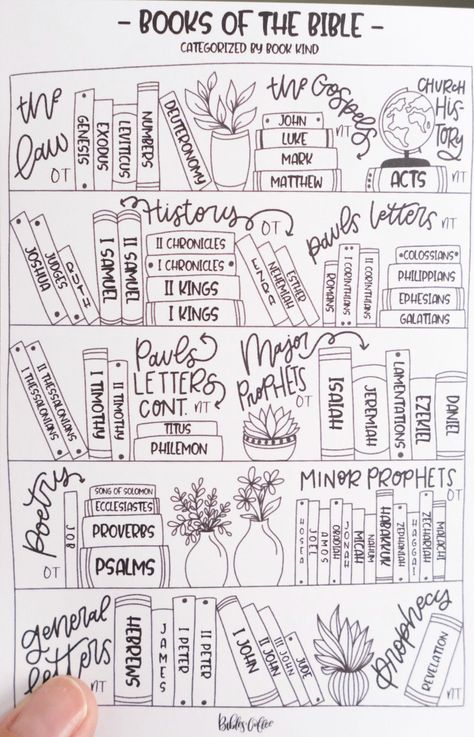 - BOOKS OF THE BIBLE -
CATEGORIZED BY BOOK KIND
the law
OT
GENESIS
EXODUS
LEVITICUS
NUMBERS
DEUTERONOMY
the Gospels
NT
JOHN
LUKE
MARK
MATTHEW
CHURCH HISTORY
NT
ACTS
History
OT
JOSHUA
JUDGES
RUTH
I SAMUEL
II SAMUEL
II CHRONICLES
I CHRONICLES
II KINGS
I KINGS
EZRA
NEHEMIAH
ESTHER
pauls letters
NT
ROMANS
I CORINTHIANS
II CORINTHIANS
COLOSSIANS
PHILIPPIANS
EPHESIANS
GALATIANS
I THESSALONIANS
II THESSALONIANS
I TIMOTHY
II TIMOTHY
Pauls
LETTERS
CONT.
NT
TITUS
PHILEMON
Major
PROPHETS
OT
ISAIAH
JEREMIAH
LAMENTATIONS
EZEKIEL
DANIEL
Poetry
OT
JOB
SONG OF SOLOMON
ECCLESIASTES
PROVERBS
PSALMS
MINOR PROPHETS
OT
HOSEA
JOEL
AMOS
OBADIAH
JONAH
MICAH
NAHUM
HABAKKUK
ZEPHANIAH
HAGGAI
ZECHARIAH
MALACHI
general
letters
NT
HEBREWS
JAMES
I PETER
II PETER
I JOHN
II JOHN
III JOHN
JUDE
prophecy
NT
REVELATION